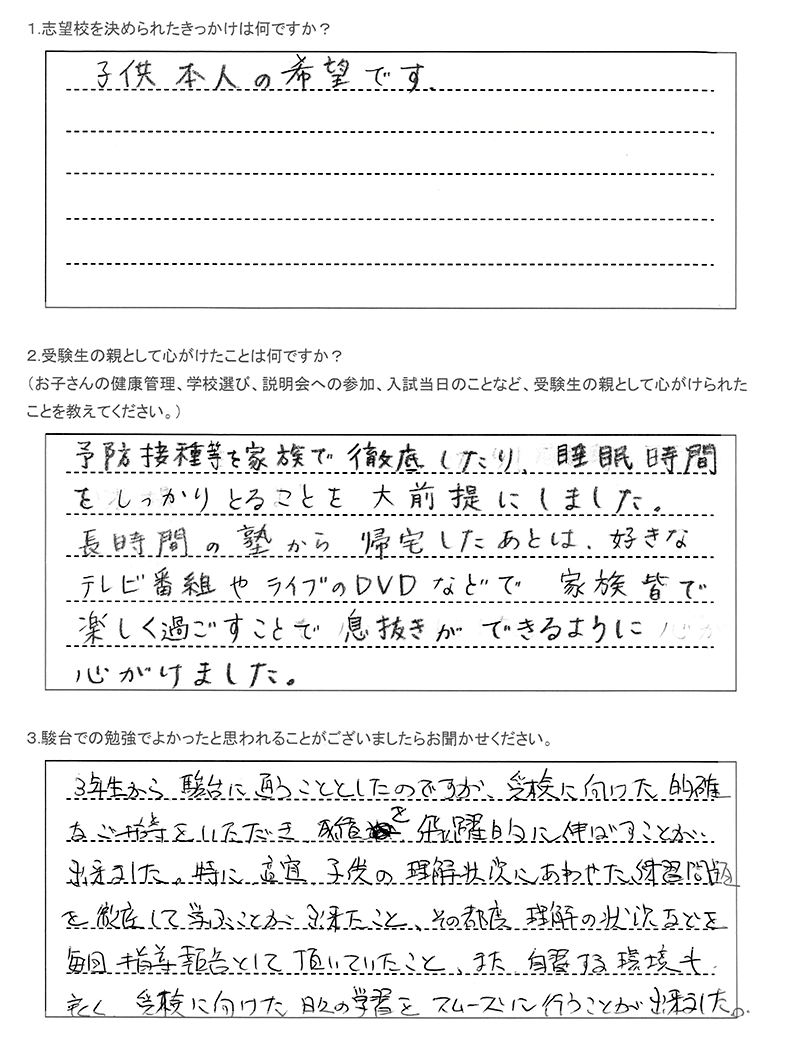 1.志望校を決められたきっかけは何ですか？
子供本人の希望です.
2.受験生の親として心がけたことは何ですか？
（お子さんの健康管理、学校選び、説明会への参加、入試当日のことなど、受験生の親として心がけられた
ことを教えてください。）
予防接種等を家族で徹底したり、睡眠時間
をしっかりとることを大前提にしました。
長時間の塾から帰宅したあとは、好きな
テレビ番組やライブのDVDなどで家族皆で
楽しく過ごすことで息抜きができるように
心がけました。
3.駿台での勉強でよかったと思われることがございましたらお聞かせください。
3年生から駿台に通うこととしたのですが、受検に向けた的確
なご指導をいただき成績を飛躍的に伸ばすことが
出来ました。特に適宜子供の理解状況にあわせた練習問題
を徹底して学ぶことが出来たこと、その都度理解の状況などを
毎回指導報告として頂いていたこと、また自習する環境も
良く受検に向けた日々の学習をスムーズに行うことが出来ました。